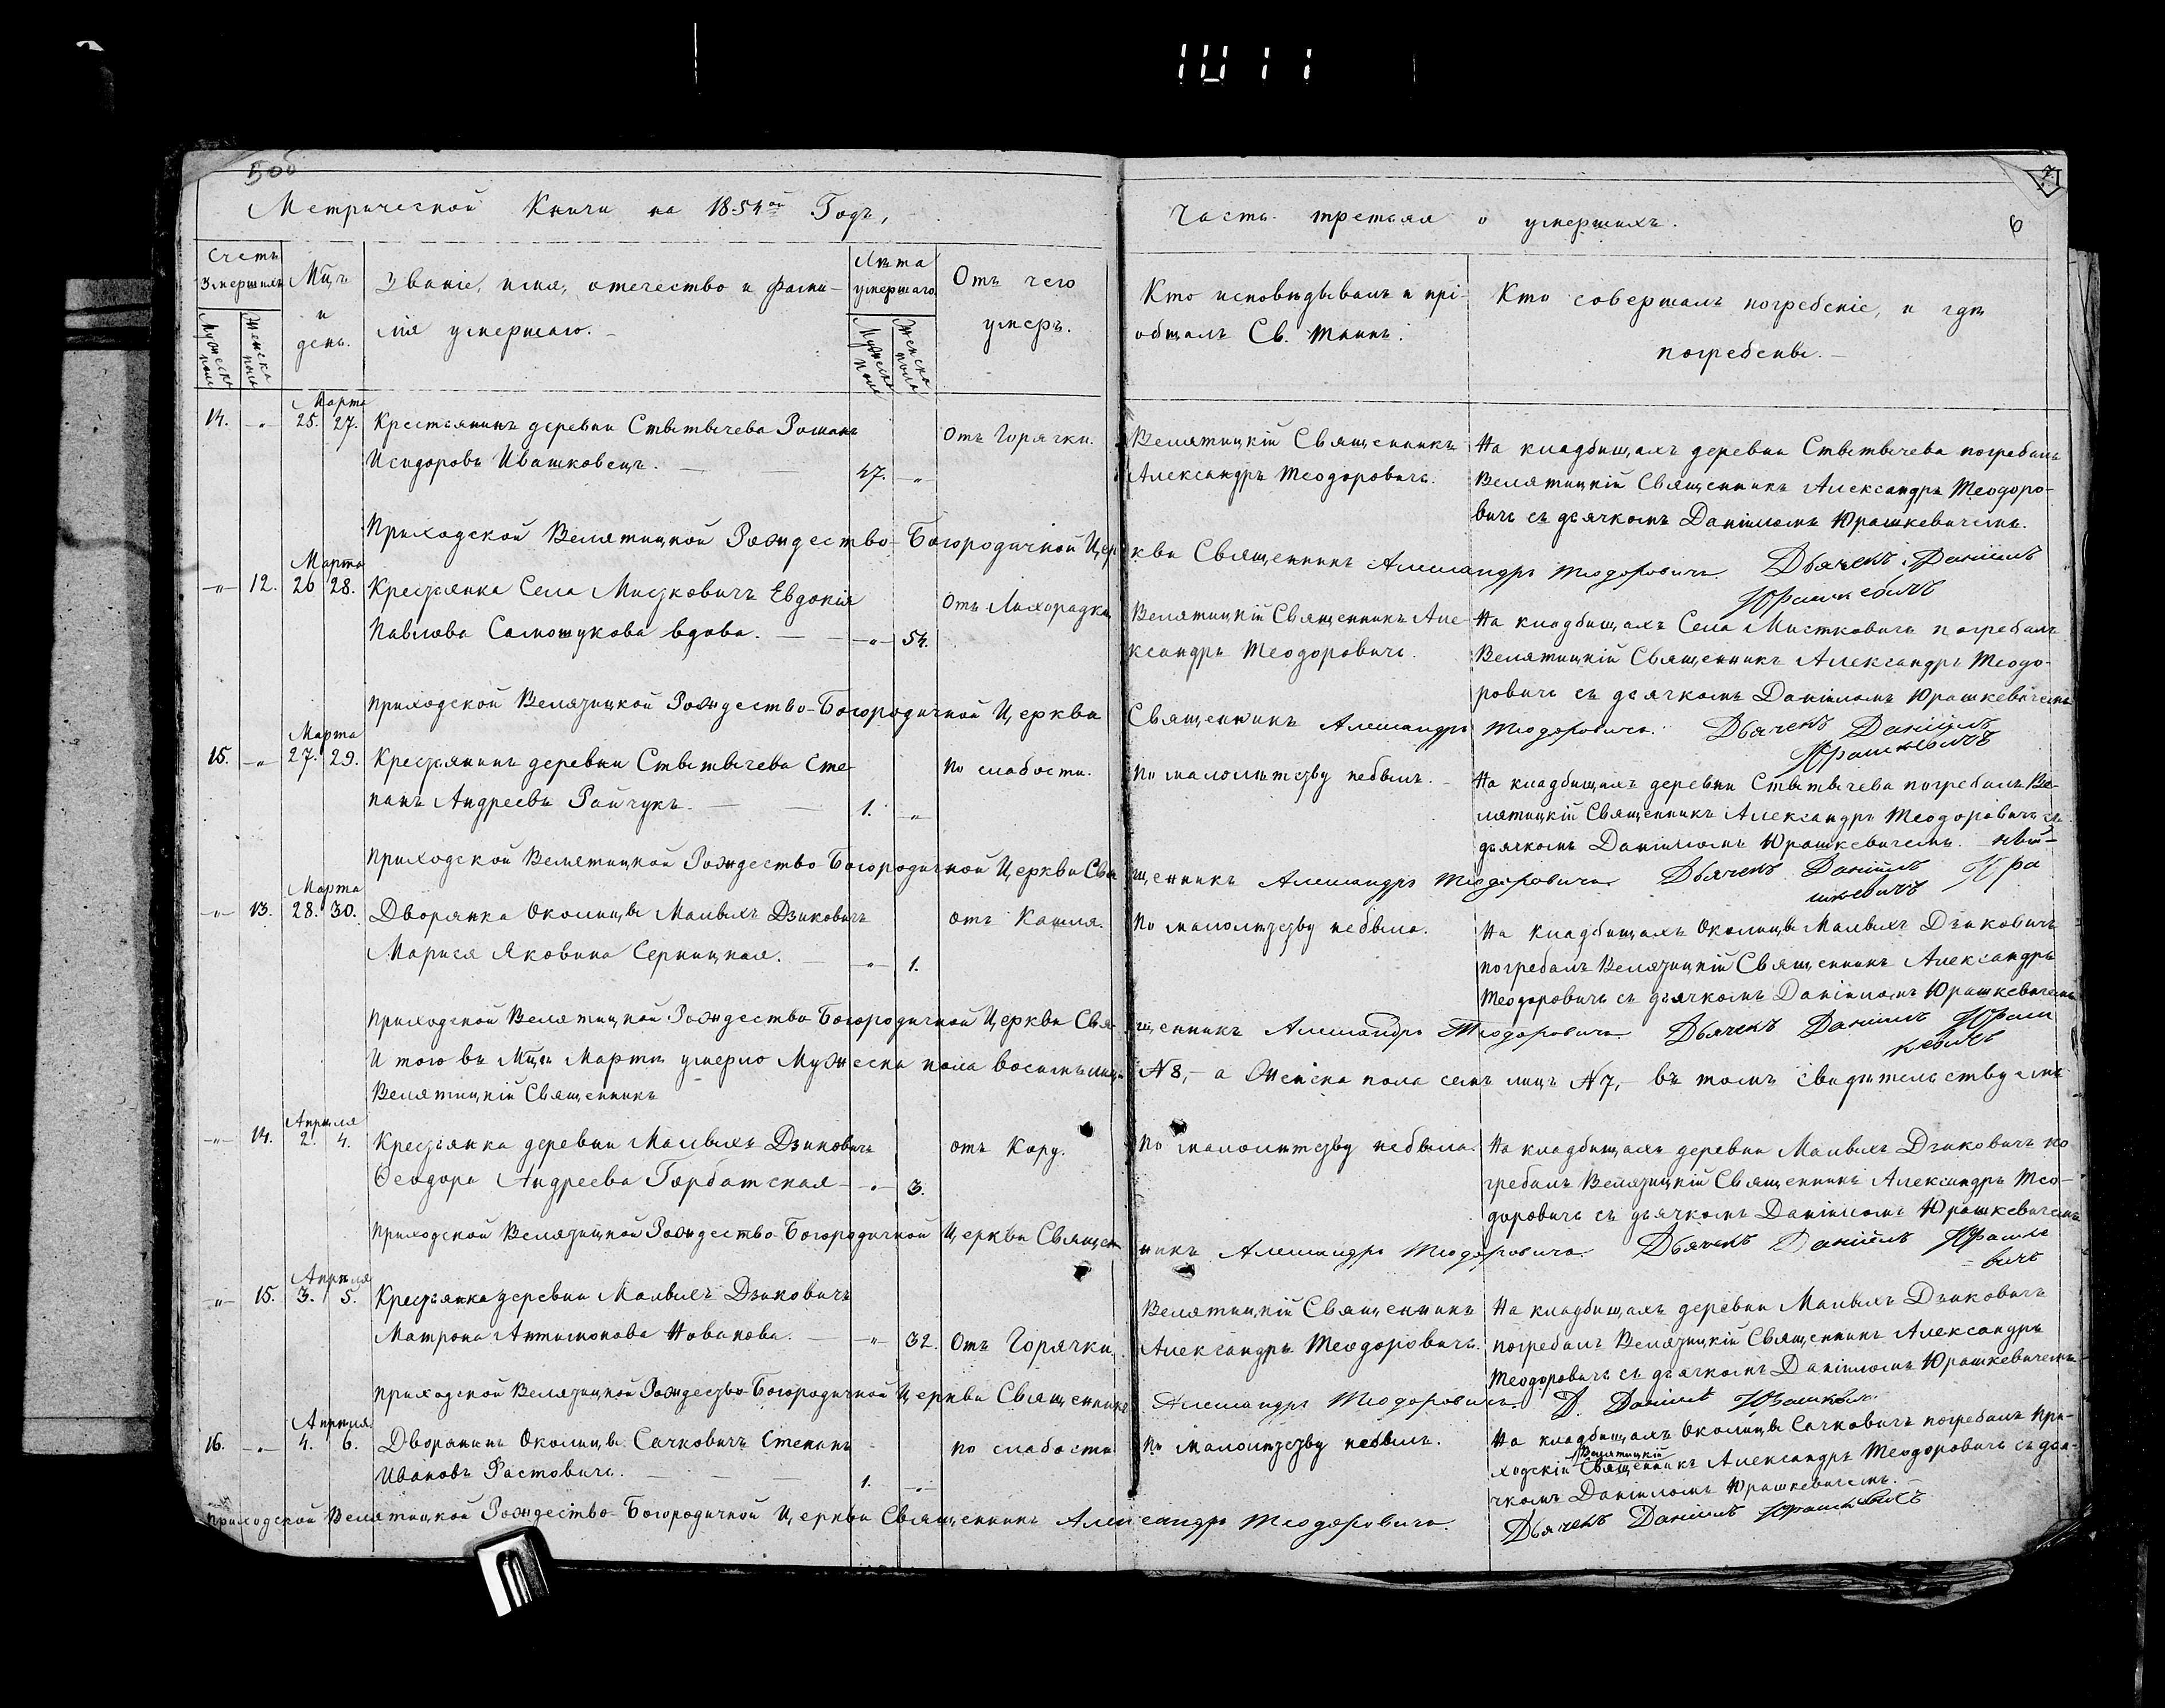 1011
500
7.
6
Метрической Книги на 1854ой Годъ,
Часть третья о умершихъ.
Счетъ умершихъ
Мужеска пола
Женска пола
Мцъ и день.
Званіе, имя, отечество и фами-
лія умершаго.
Лѣта умершаго
Мужеска пола
Женска пола
Отъ чего
умеръ.
Кто исповѣдывалъ и прі-
общалъ Св. Таинъ.
Кто совершалъ погребеніе, и гдѣ
погребены.
Марта
14. -"- 25. 27. Крестьянинъ деревни Стытычева Романъ
Исидоровъ Ивашковецъ. 47. -"-
Отъ Горячки.
Велятицкій Священникъ
Александръ Теодоровичъ.
На кладбищахъ деревни Стытычева погребалъ
Велятицкій Священникъ Александръ Теодоро-
вичъ съ дьячкомъ Даніиломъ Юрашкевичемъ.
Приходской Велятицкой Рождество-Богородичной Церкви Священникъ Александръ Теодоровичъ. Дьячекъ Даніилъ
Юрашкевичъ
Марта
-"- 12. 26 28. Крестьянка Села Мистковичъ Евдокія
Павлова Самощукова вдова. -"- 54.
Отъ Лихорадки
Велятицкій Священникъ Але-
ксандръ Теодоровичъ.
На кладбищахъ Села Мистковичъ погребалъ
Велятицкій Священникъ Александръ Теодо-
ровичъ съ дьячкомъ Даніиломъ Юрашкевичемъ
Приходской Велятицкой Рождество-Богородичной Церкви Священникъ Александръ Теодоровичъ. Дьячекъ Даніилъ
Юрашкевичъ
Марта
15. -"- 27. 29. Крестьянинъ деревни Стытычева Сте-
панъ Андреевъ Райчукъ. 1. -"-
По слабости.
По малолѣтству небылъ.
На кладбищахъ деревни Стытычева погребалъ Ве-
лятицкій Священникъ Александръ Теодоровичъ съ
дьячкомъ Даніиломъ Юрашкевичемъ.
Приходской Велятицкой Рождество-Богородичной Церкви Священникъ Александръ Теодоровичъ. Дьячекъ Даніилъ Юра
шкевичъ
Марта
-"- 13. 28. 30. Дворянка Околицы Малыхъ Дзиковичъ
Марися Яковина Серницкая. -"- 1.
Отъ Кашля.
По малолѣтству небыла.
На кладбищахъ Околицы Малыхъ Дзиковичъ
погребалъ Велятицкій Священникъ Александръ
Теодоровичъ съ дьячкомъ Даніиломъ Юрашкевичемъ
Приходской Велятицкой Рождество-Богородичной Церкви Священникъ Александръ Теодоровичъ. Дьячекъ Даніилъ Юраш
кевичъ
И того въ Мцѣ Мартѣ умерло Мужеска пола восемь лицъ N 8,- а Женска пола семь лицъ N 7,- въ томъ свидѣтельствуемъ
Велятицкій Священникъ
Апреля
-"- 14. 2. 4. Крестьянка деревни Малыхъ Дзиковичъ
Феодора Андреева Горбатская -"- 3.
Отъ Кору.
По малолѣтству небыла.
На кладбищахъ деревни Малыхъ Дзиковичъ по-
гребалъ Велятицкій Священникъ Александръ Тео-
доровичъ съ дьячкомъ Даніиломъ Юрашкевичемъ
Приходской Велятицкой Рождество-Богородичной Церкви Священникъ Александръ Теодоровичъ. Дьячекъ Даніилъ Юрашке
=вичъ
Апреля
-"- 15. 3. 5. Крестьянка деревни Малыхъ Дзиковичъ
Матрона Антимонова Новакова. -"- 32.
Отъ Горячки.
Велятицкій Священникъ
Александръ Теодоровичъ.
На кладбищахъ деревни Малыхъ Дзиковичъ
погребалъ Велятицкій Священникъ Александръ
Теодоровичъ съ дьячкомъ Даніиломъ Юрашкевичемъ
Приходской Велятицкой Рождество-Богородичной Церкви Священникъ Александръ Теодоровичъ. Д. Даніилъ Юрашкевичъ
Апреля
16. -"- 4. 6. Дворянинъ Околицы Сачковичъ Степанъ
Ивановъ Растовичъ. 1. -"-
По слабости
По малолѣтству небылъ.
На кладбищахъ Околицы Сачковичъ погребалъ При-
ходскій Велятицкій Священникъ Александръ Теодоровичъ съ дья-
чкомъ Даніиломъ Юрашкевичемъ.
Приходской Велятицкой Рождество-Богородичной Церкви Священникъ Александръ Теодоровичъ.
Дьячекъ Даніилъ Юрашкевичъ